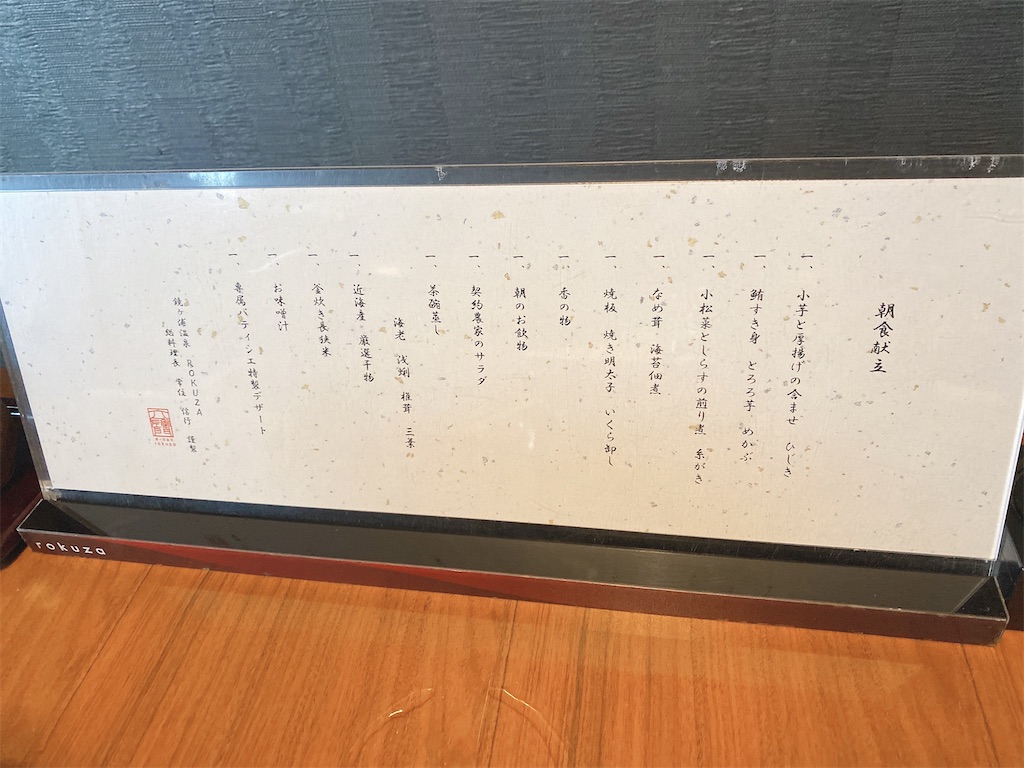 朝食献立
一、小芋と厚揚げの含ませ　ひじき
一、鮪すき身　とろろ芋　めかぶ
一、小松菜としらすの煎り煮　糸がき
一、なめ茸　海苔佃煮
一、焼板　焼き明太子　いくら卸し
一、香の物
一、朝のお飲物
一、契約農家のサラダ
一、茶碗蒸し
海老　浅蜊　椎茸　三葉
一、近海産　厳選干物
一、釜炊き長狭米
一、お味噌汁
一、専属パティシエ特製デザート
鏡ヶ浦温泉　ROKUZA
総料理長　常住　信行　謹製
rokuza